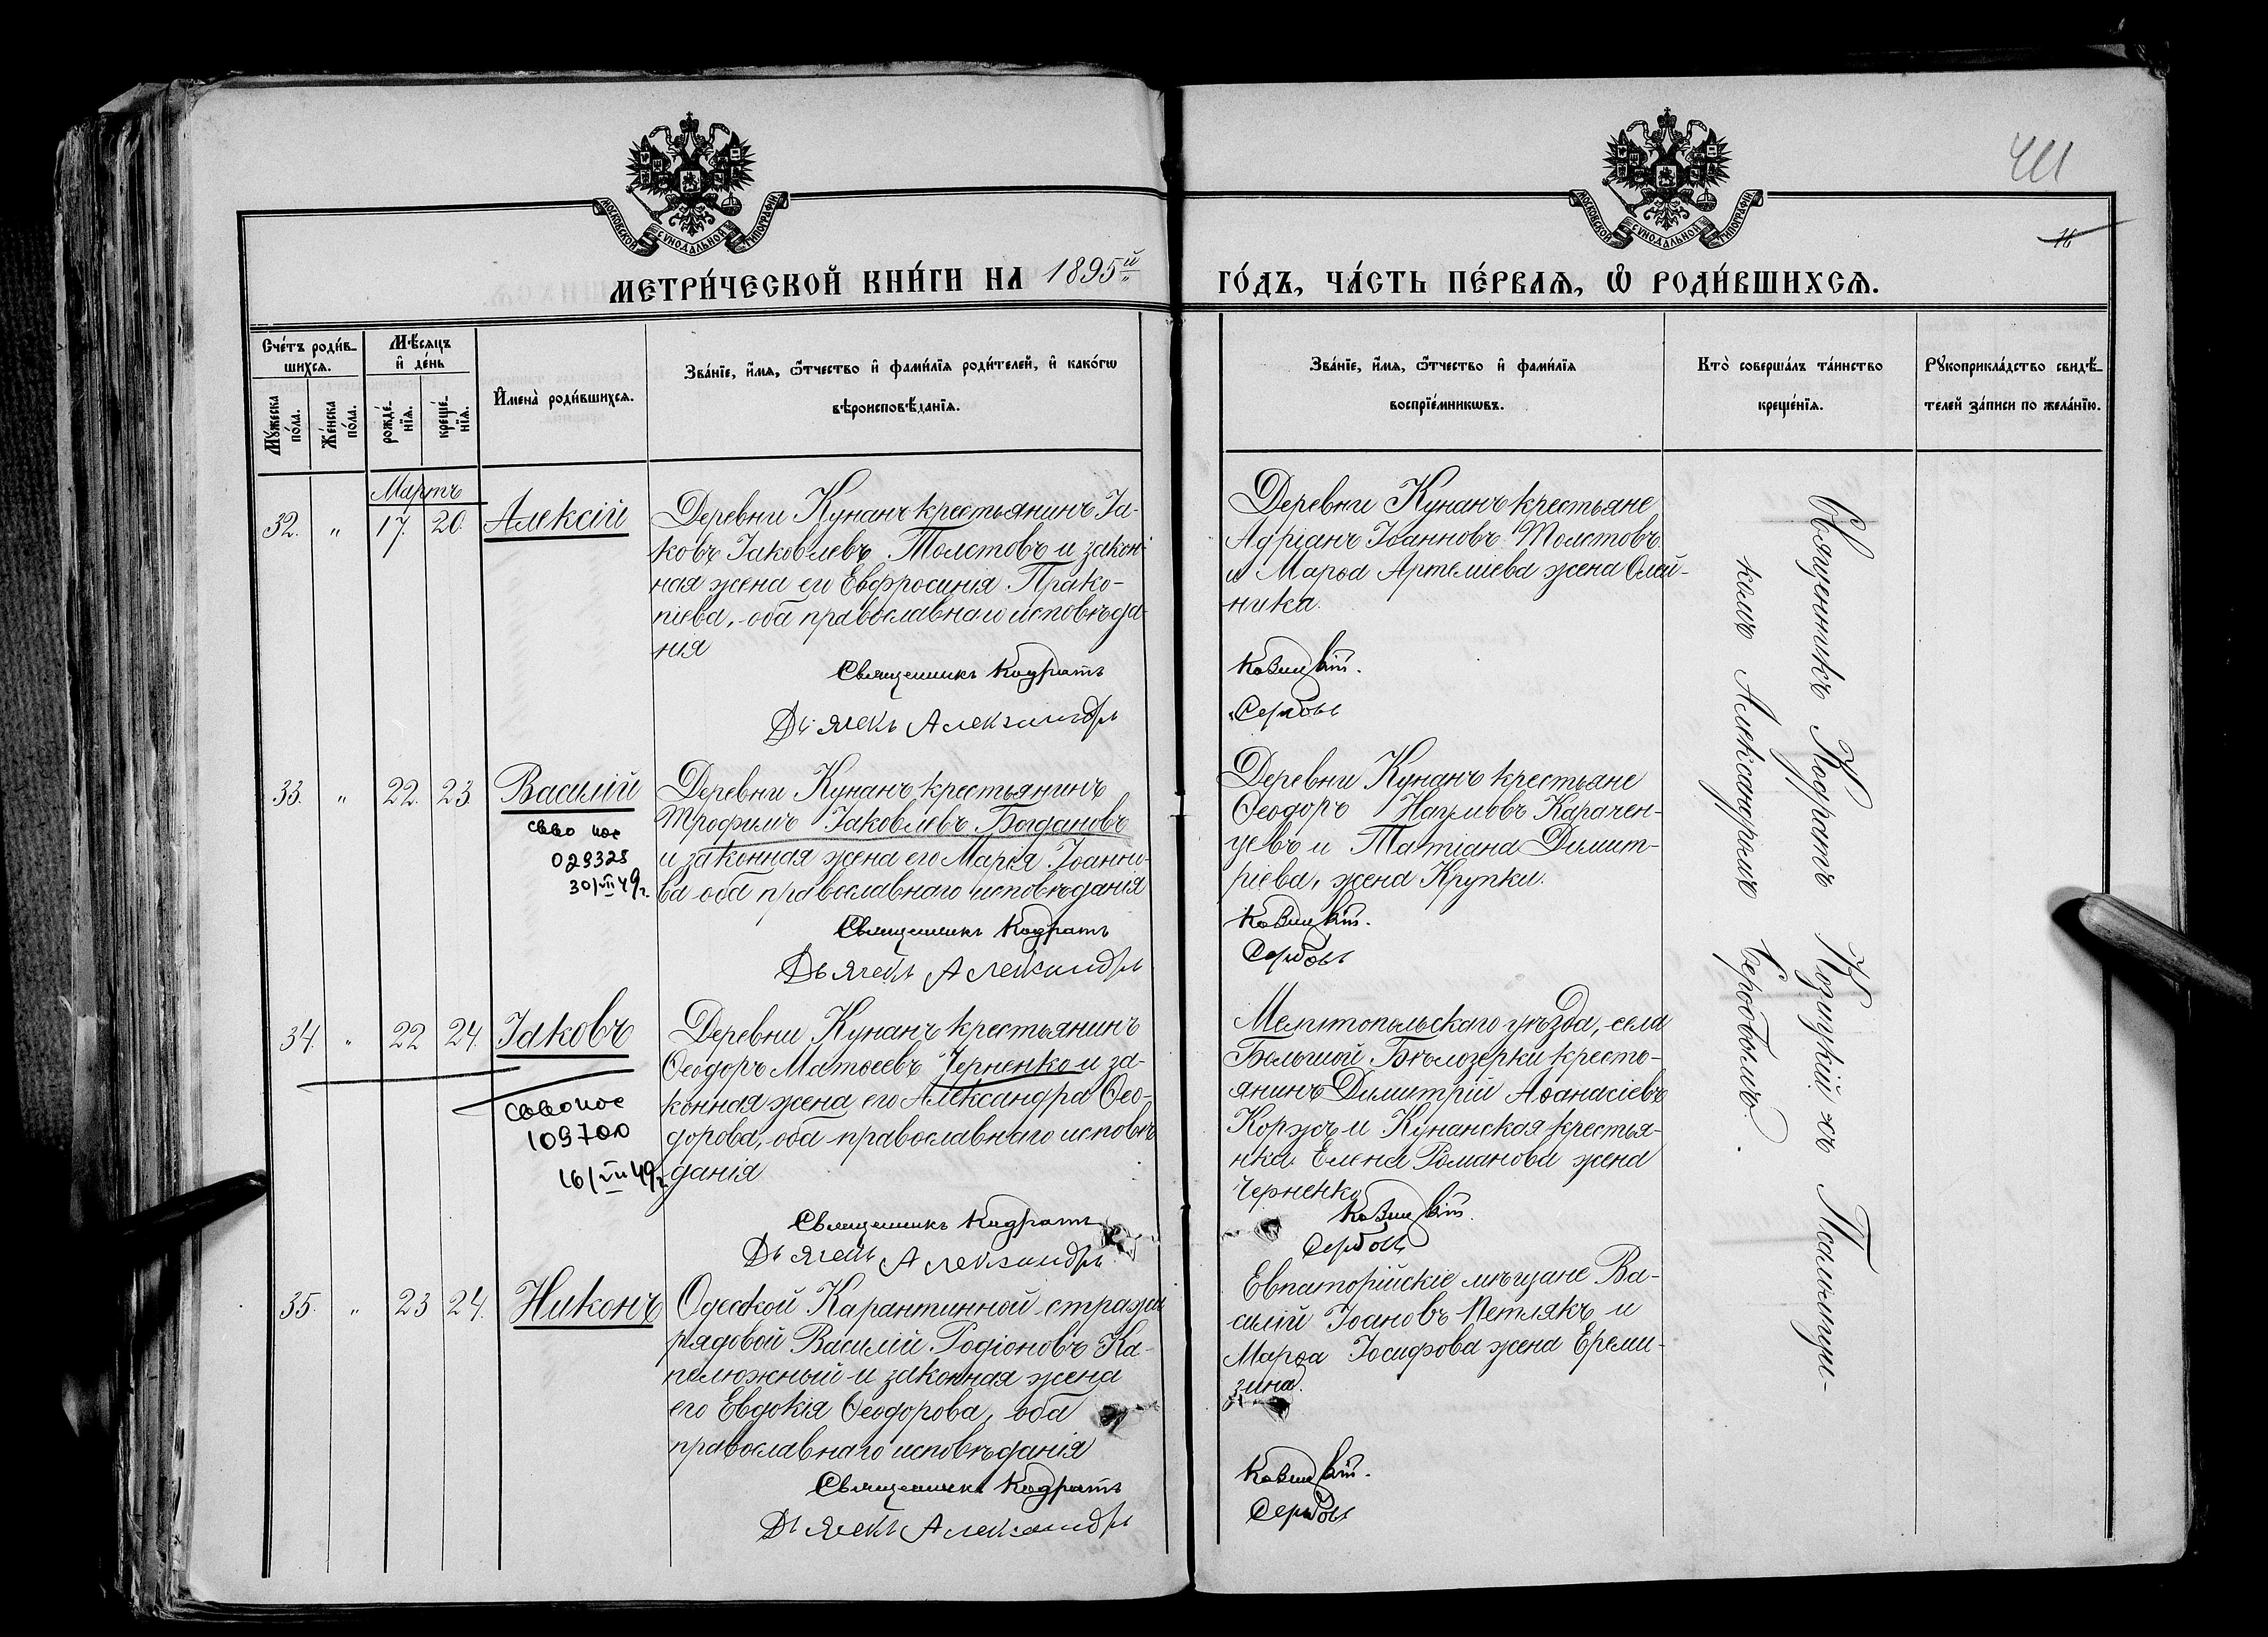 МОСКОВСКОЙ СѴНОДАЛЬНОЙ ТИПОГРАФІИ
МОСКОВСКОЙ СѴНОДАЛЬНОЙ ТИПОГРАФІИ
411
16
МЕТРИ́ЧЕСКОЙ КНИ́ГИ НА 1895й
ГО́ДЪ, ЧА́СТЬ ПЕ́РВАѦ, Ѽ РОДИ́ВШИХСѦ.
Сче́тъ роди́в-
шихсѧ.
Мꙋ́жеска
по́ла.
Же́нска
по́ла.
Мѣ́сѧцъ
и҆ де́нь
рожде́-
нїѧ.
креще́-
нїѧ.
И҆мена̀ роди́вшихсѧ.
Зва́нїе, и҆́мѧ, ѻ҆́тчество и҆ фами́лїѧ роди́телей, и҆ како́гѡ
вѣроисповѣ́данїѧ.
Зва́нїе, и҆́мѧ, ѻ҆́тчество и҆ фами́лїѧ
воспрїе́мникѡвъ.
Кто̀ соверша́лъ та́инство
креще́нїѧ.
Рꙋкоприкла́дство свидѣ́-
телей за́писи по жела́нїю.
Мартъ
32. " 17. 20. Алексій
Деревни Кунанъ крестьянинъ Іа-
ковъ Іаковлевъ Толстовъ и закон-
ная жена его Евфросинія Прако-
піева, оба православнаго исповѣда-
нія
Священникъ Кодратъ
Дьячекъ Александръ
Деревни Кунанъ крестьяне
Адріанъ Іоанновъ Толстовъ
и Марѳа Артеміева жена Олей-
ника.
Козицкій.
Сербовъ
33. " 22. 23. Василій
св-во пос
029328
30/VII 49г.
Деревни Кунанъ крестьянинъ
Трофимъ Іаковлевъ Богдановъ
и законная жена его Марія Іоанно-
ва оба православнаго исповѣданія
Священникъ Кодратъ
Дьячекъ Александръ
Деревни Кунанъ крестьяне
Ѳеодоръ Наумовъ Карачен-
цевъ и Татіана Димит-
ріева, жена Крупки.
Козицкій.
Сербовъ
34. " 22 24. Іаковъ
св-во пос
109700
16/VII 49г.
Деревни Кунанъ крестьянинъ
Ѳеодоръ Матѳеевъ Черненко и за-
конная жена его Александра Ѳео-
дорова, оба православнаго исповѣ-
данія
Священникъ Кодратъ
Дьячекъ Александръ
Мелитопольскаго уѣзда, села
Большой Бѣлозерки кресть-
янинъ Димитрій Аѳанасіевъ
Коржъ и Кунанская крестья-
нка Елена Романова жена
Черненко
Козицкій.
Сербовъ
35. " 23 24. Никонъ
Одесской Карантинной стражи
рядовой Василій Родіоновъ Ка-
пелюжный и законная жена
его Евдокія Ѳеодорова, оба
православнаго исповѣданія
Священникъ Кодратъ
Дьячекъ Александръ
Евпаторійскіе мѣщане Ва-
силій Іоановъ Петлякъ и
Марѳа Іосифова жена Ереми-
зина.
Козицкій.
Сербовъ
Священникъ Кодратъ Козицкій съ Псаломщи-
комъ Александромъ Сербовымъ.